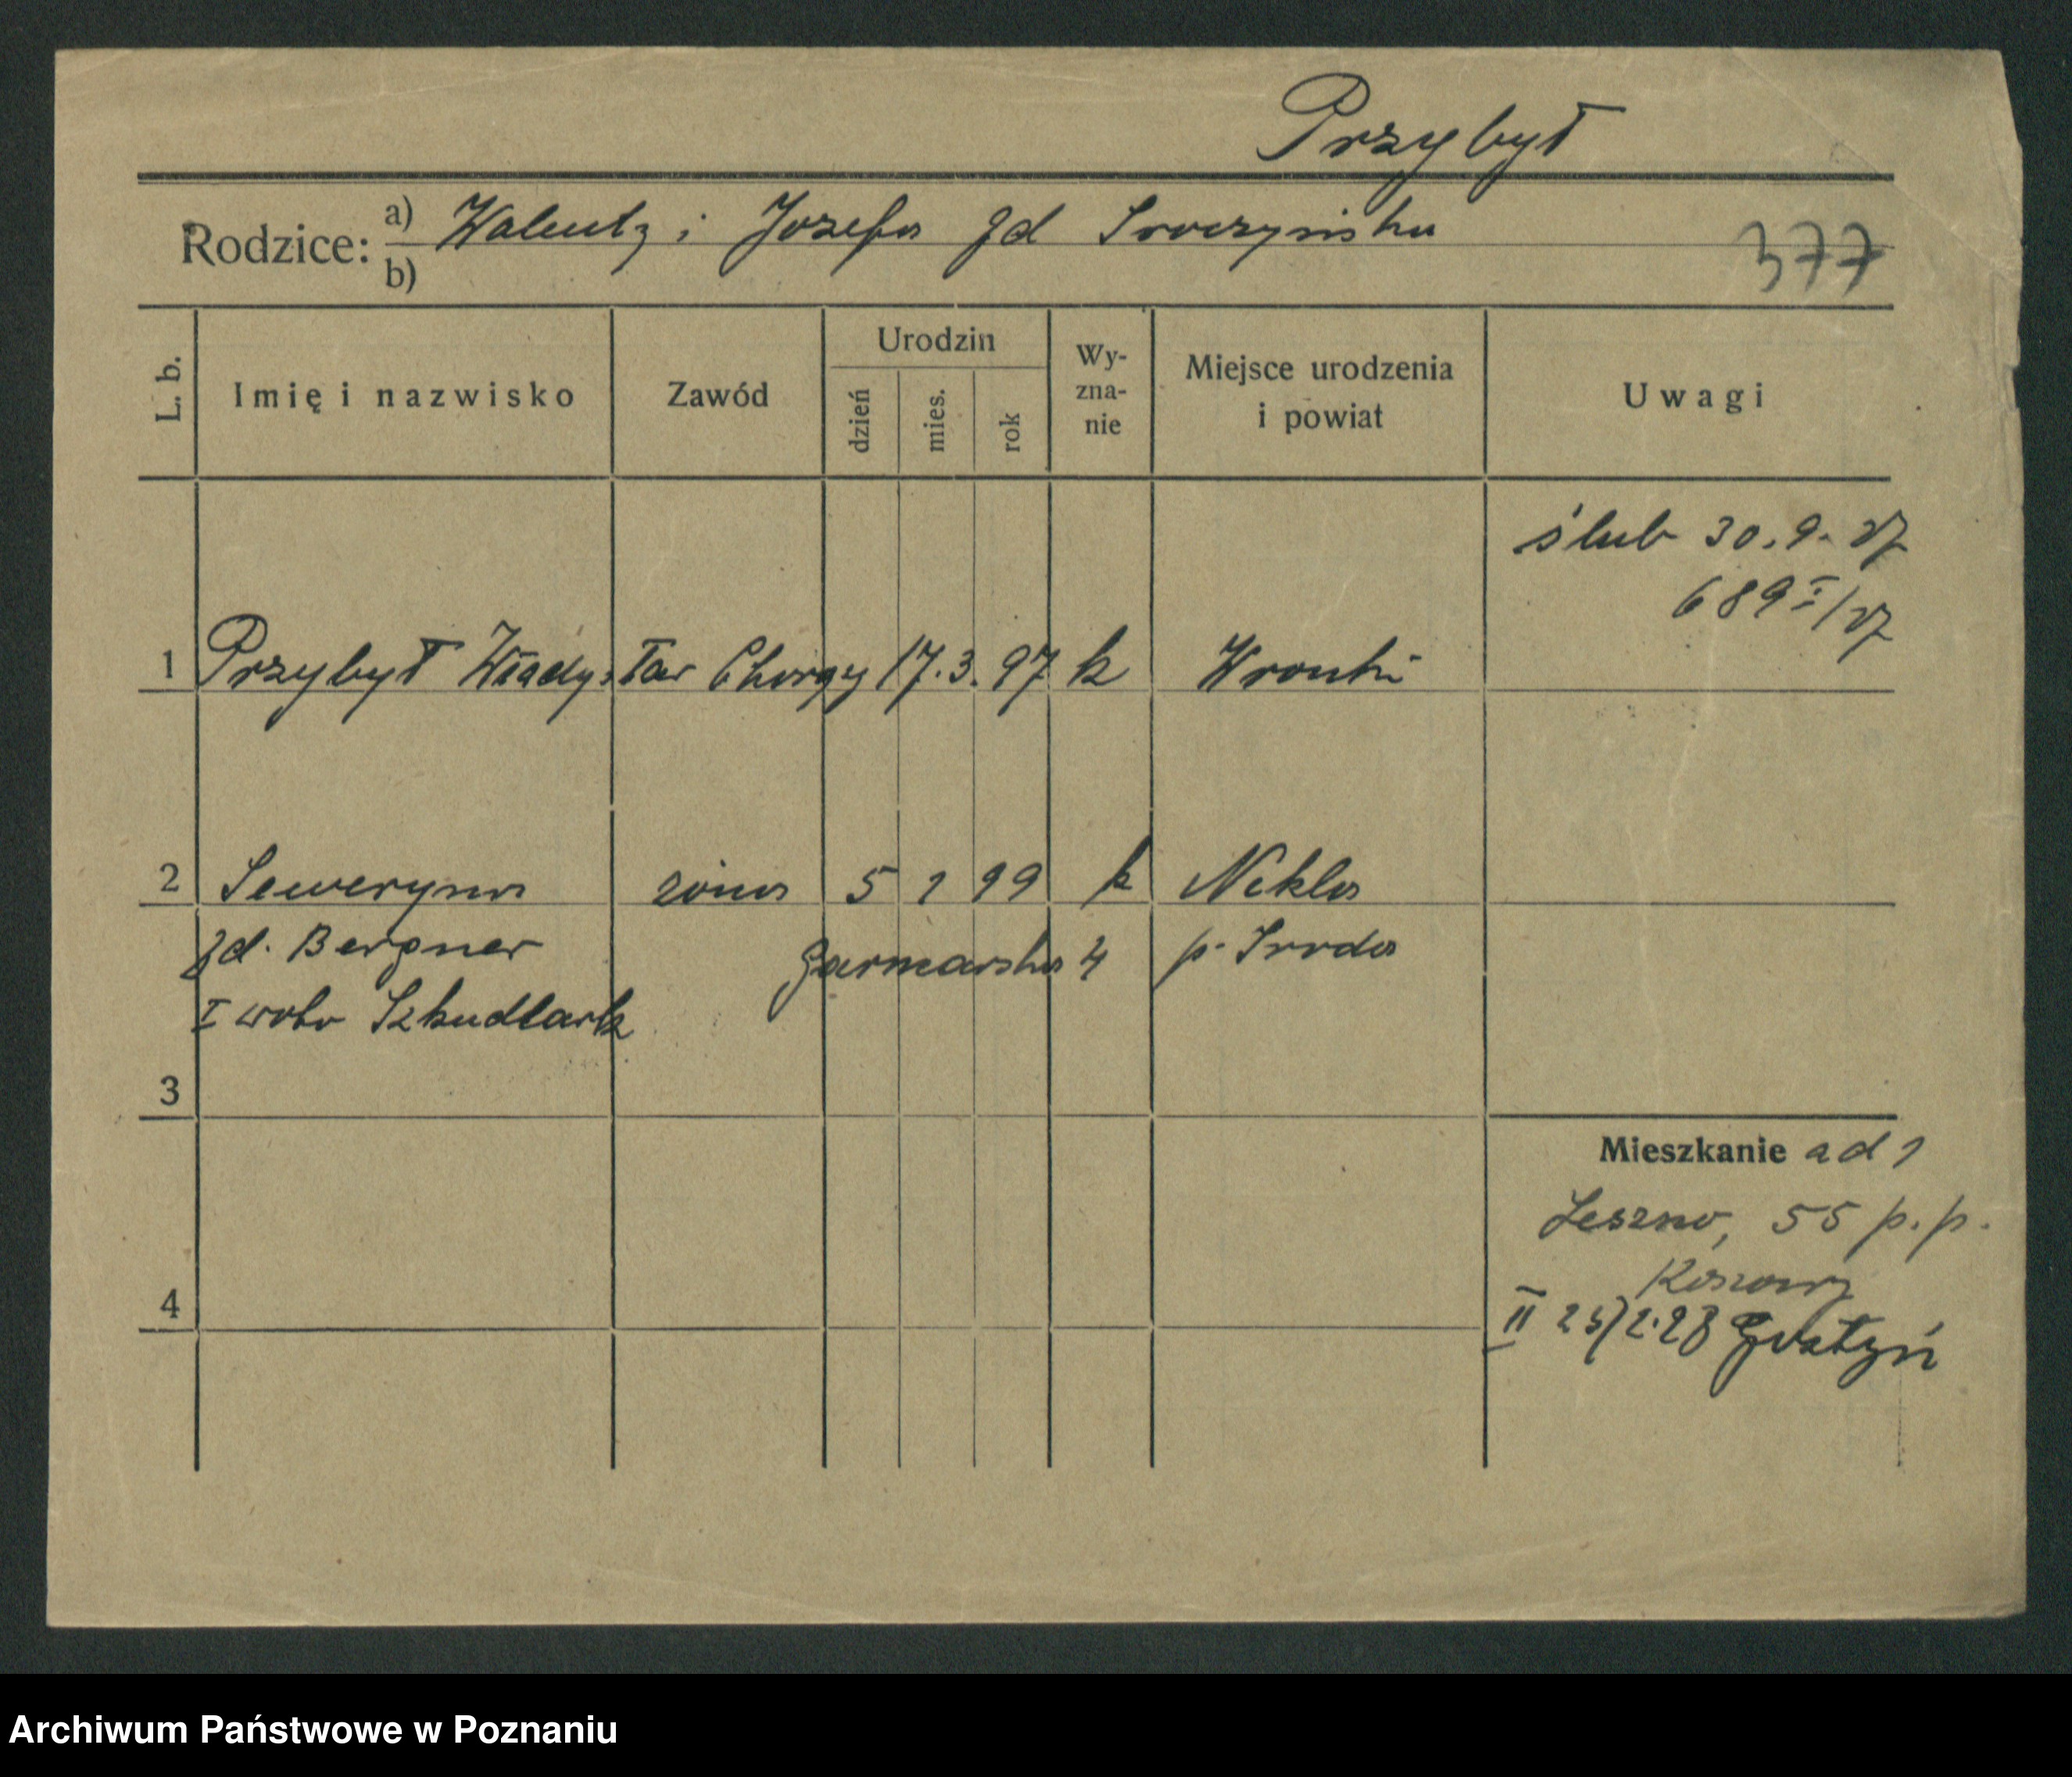 Przybył
Rodzice: a) Walenty i Józefa zd Sroczyńska
b)
377
L. b.
Imię i nazwisko
Zawód
Urodzin
dzień
mies.
rok
Wy-
zna-
nie
Miejsce urodzenia
i powiat
Uwagi
ślub 30.9.27
689 I/27
1 Przybył Władysław Chorąży 17.3.97 k Wronki
2 Seweryna żona 5 1 99 k Nekla
zd. Bergner Garncarska 4 p. Środa
I voto Szkudlark
3
Mieszkanie ad 1
Leszno, 55 p.p.
4
II 25/2.28 Gostyń
Archiwum Państwowe w Poznaniu